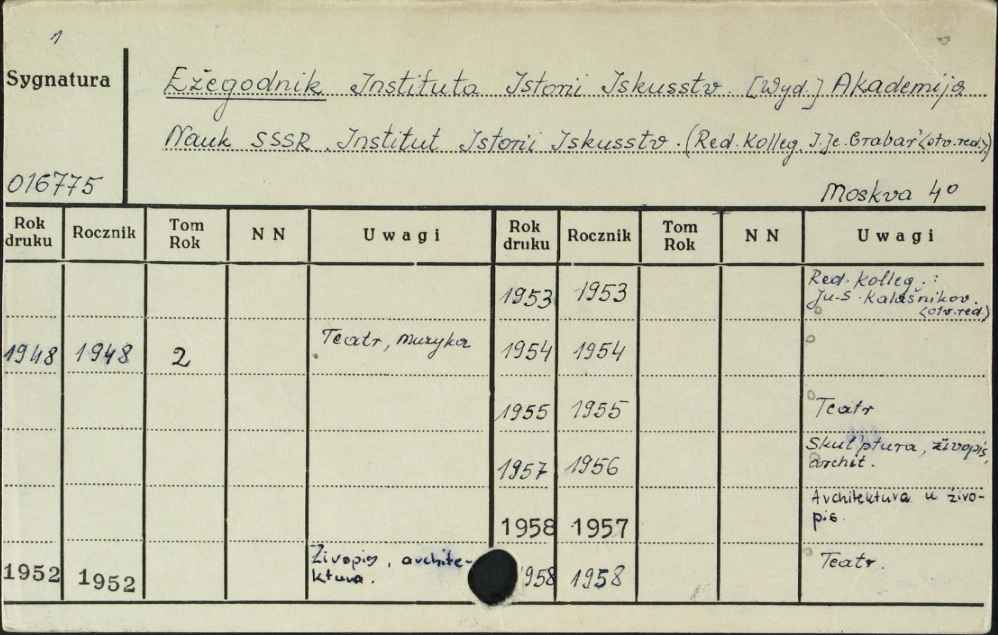 1
Sygnatura
Ežegodnik Instituta Istorii Iskusstv. [Wyd.] Akademija
Nauk SSSR. Institut Istorii Iskusstv. (Red. Kolleg. I. Je. Grabar' (otv. red.))
016775
Moskva 4°
Rok druku Rocznik Tom Rok NN Uwagi Rok druku Rocznik Tom Rok NN Uwagi
1953 1953 Red. Kolleg.:
Ju. S. Kalašnikov.
(otv. red.)
1948 1948 2 Teatr, muzyka 1954 1954
1955 1955 Teatr
1957 1956 Skul'ptura, živopis,
archit.
1958 1957 Architektura u živo-
pis.
1952 1952 Živopis, archite-
ktura.
1958 1958 Teatr.